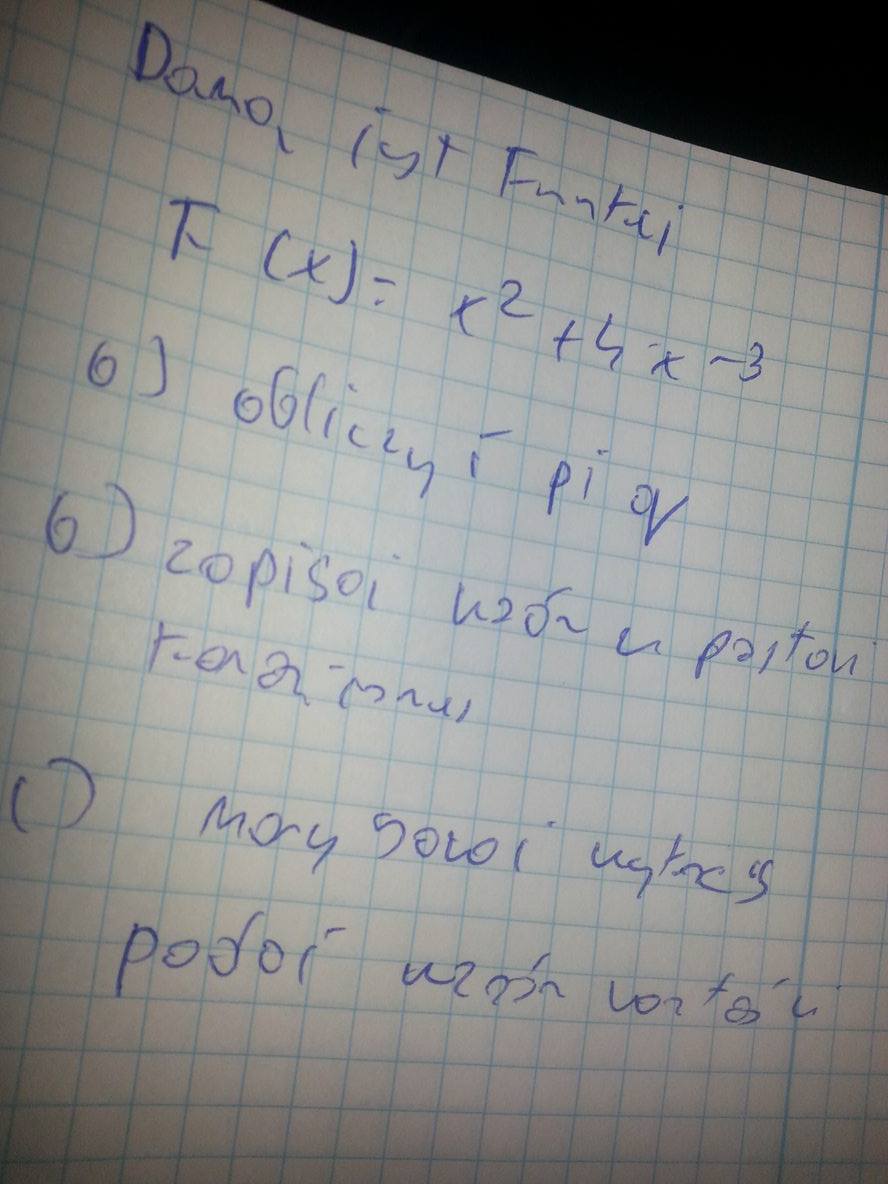 Dana jest Funkcj
F (x) = x² + 4x - 3
a) obliczyć p i q
b) zapisać wzór w postaci
kanonicznej
c) narysować wykres
podać wzór wartości